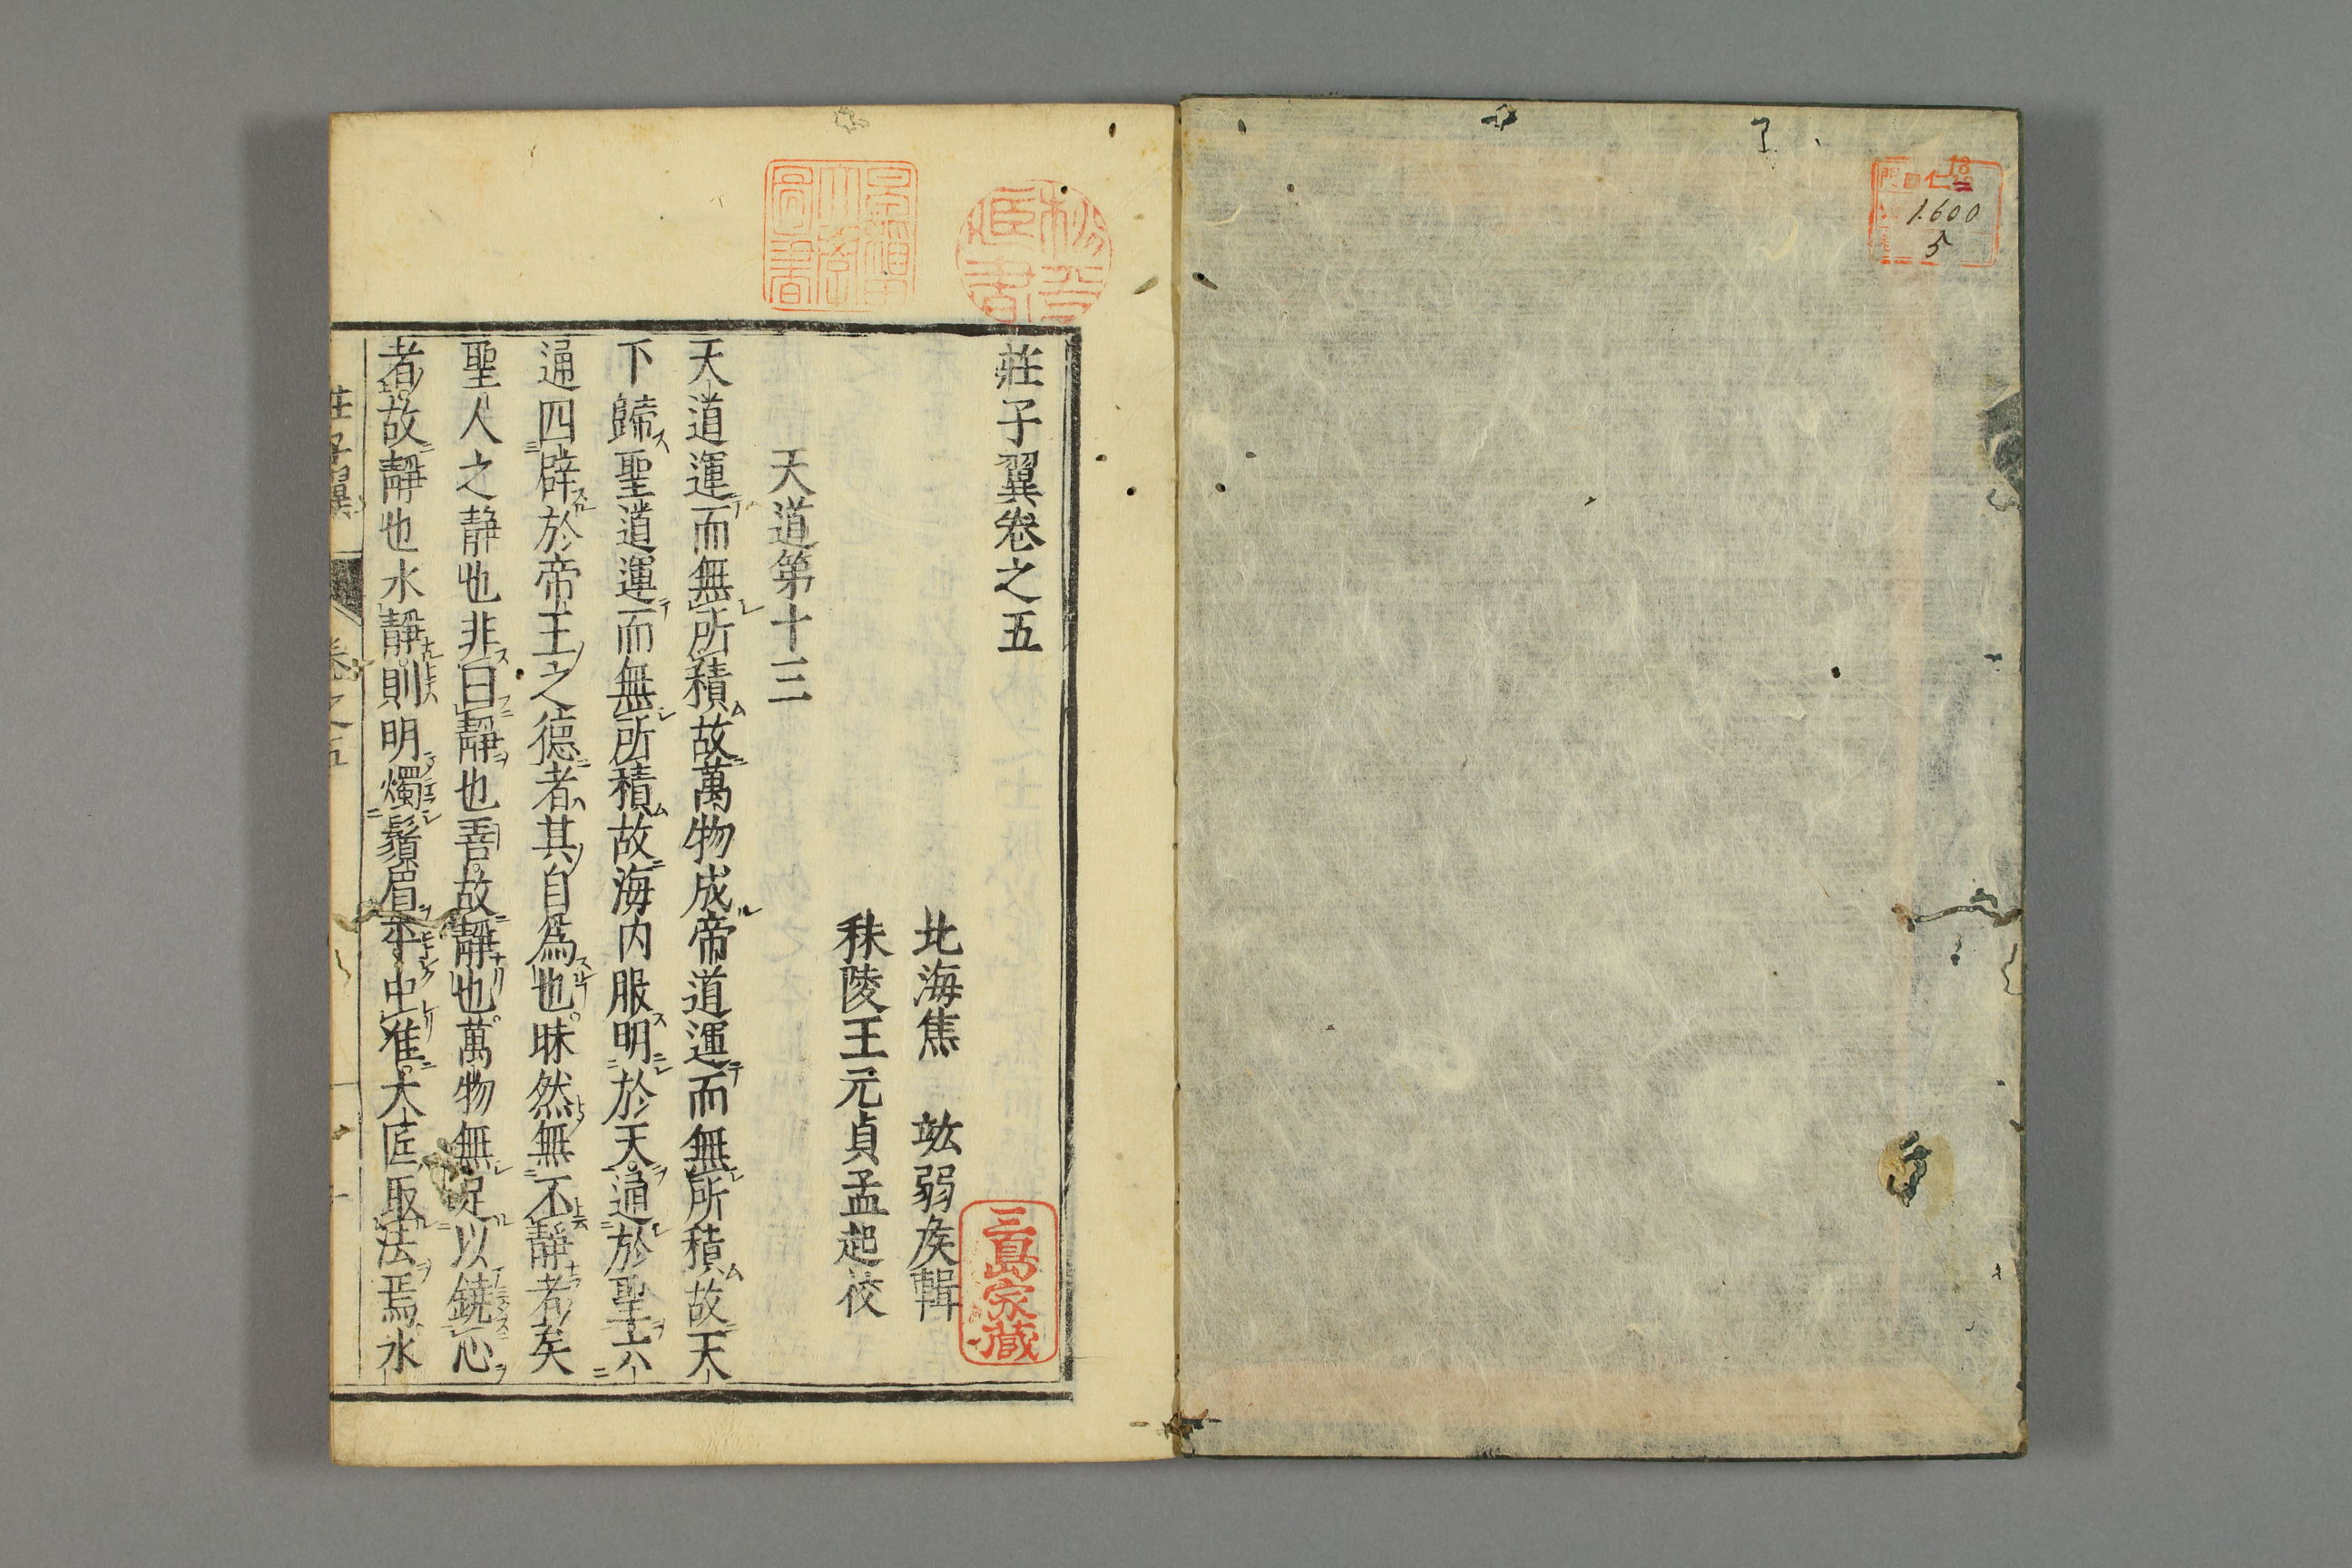 仁
18
1.600
5
莊子翼卷之五
北海焦 竑弱侯輯
秣陵王元貞孟起校
天道第十三
天道運而無所積故萬物成帝道運而無所積故天
下歸聖道運而無所積故海内服明於天通於聖六
通四辟於帝王之德者其自爲也昧然無不靜者矣
聖人之静也非曰靜也善故靜也萬物無足以鐃心
者故靜也水靜則明燭鬚眉平中准大匠取法焉水
莊子翼 卷之五
三島家藏